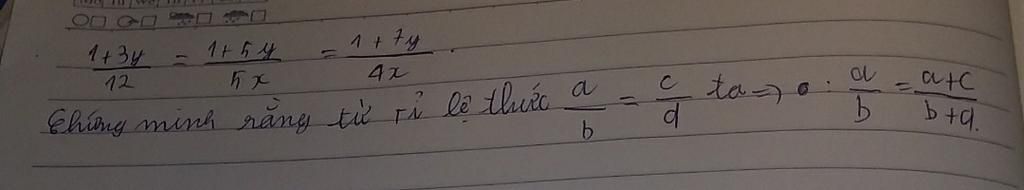 1+3y/12 = 1+5y/5x = 1+7y/4x.
Chứng minh rằng từ tỉ lệ thức a/b = c/d ta => : a/b = a+c/b+d.